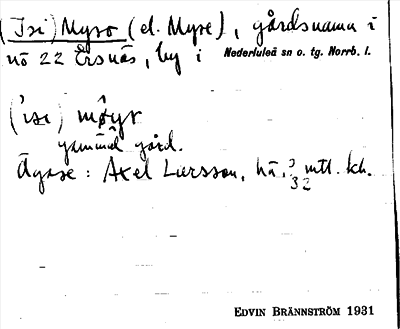 (Isi) Myro (el. Myre), gårdsnamn i
nö 22 Ersnäs, by i Nederluleå sn o. tg. Norrb. l.
gammal gård.
Ägare: Axel Larsson, hä. 3/32 mtl. kb.
EDVIN BRÄNNSTRÖM 1931